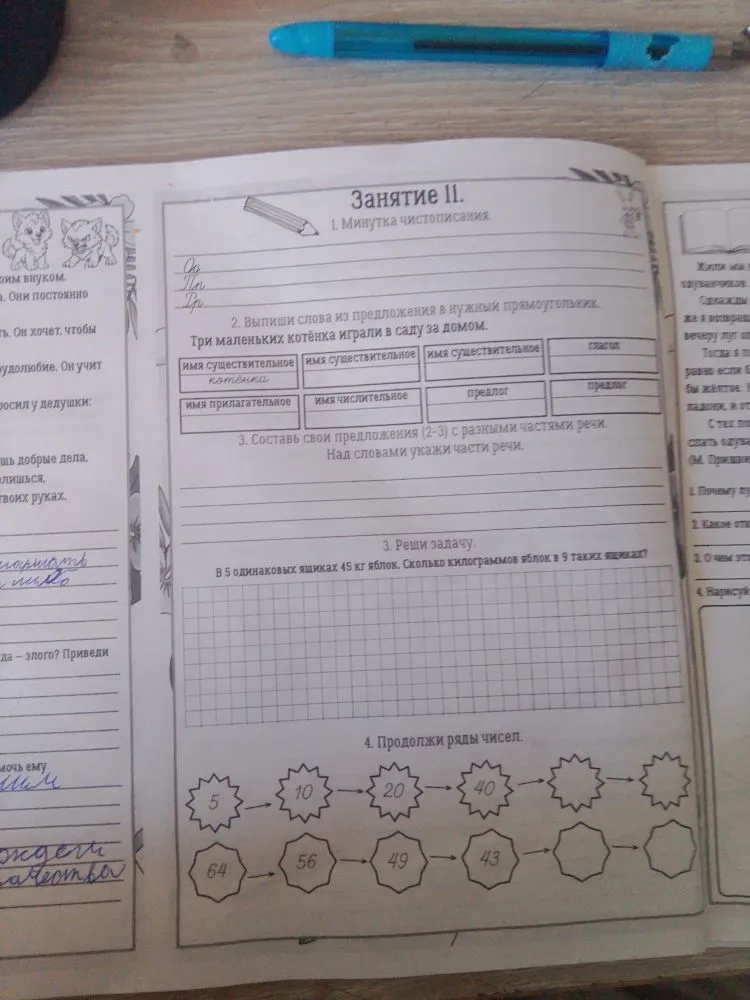 оим внуком.
Они постоянно
ть. Он хочет, чтобы
рудолюбие. Он учит
росил у дедушки:
шь добрые дела,
лишься,
твоих руках.
да – злого? Приведи
мочь ему
Занятие 11.
1. Минутка чистописания.
Оо
Пп
Рр
2. Выпиши слова из предложения в нужный прямоугольник.
Три маленьких котёнка играли в саду за домом.
имя существительное имя существительное имя существительное глагол
котёнка
имя прилагательное имя числительное предлог предлог
3. Составь свои предложения (2-3) с разными частями речи.
Над словами укажи части речи.
3. Реши задачу.
В 5 одинаковых ящиках 45 кг яблок. Сколько килограммов яблок в 9 таких ящиках?
4. Продолжи ряды чисел.
5 10 20 40
64 56 49 43
Жили мы
одуванчиков.
Однажды
же я возвращ
вечеру луг
Тогда я
равно если б
бы жёлтое.
ладони, и от
С тех по
спать одува
(М. Пришви
1. Почему лу
2. Какое
3. О чем
4. Нарисуй